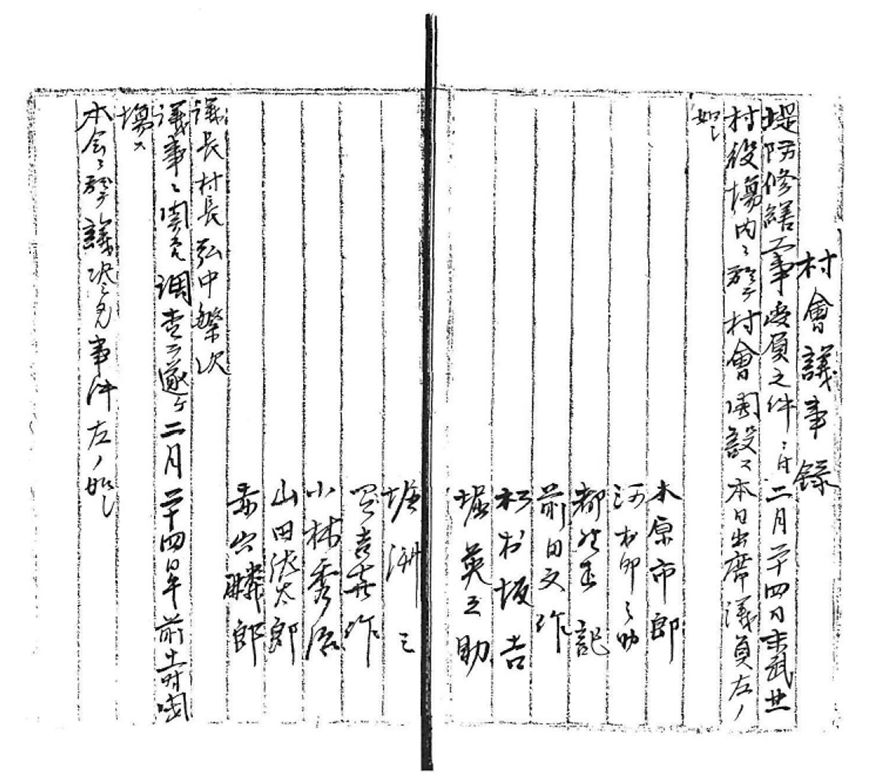 村會議事録
堤防修繕工事委員之件ニ付二月二十四日末武
村役塲内ニ於テ村會開設ス本日出席議員左ノ
如シ
木原市郎
河村卯之助
都野玉記
前田文作
松村坂吉
堀英之助
堀洲三
吉喜作
小林秀治
山田浅太郎
麟郎
議長村長弘中繁次
議事ニ関スル調査ヲ遂ケ二月二十四日午前十時開
塲ス
本会ニ於テ議决スル事件左ノ如シ